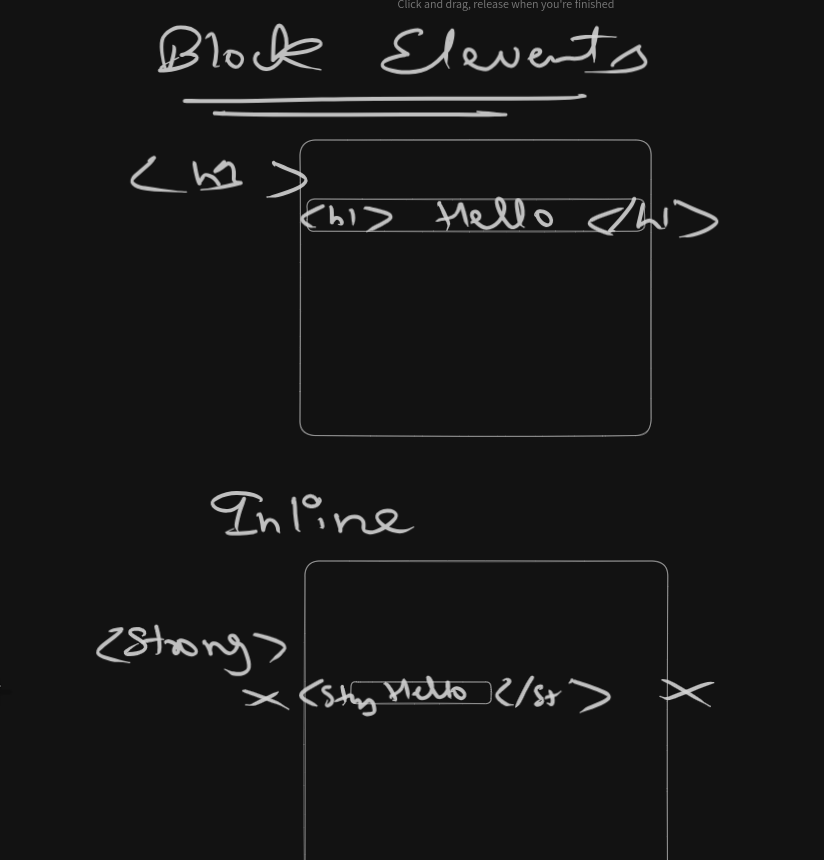 Click and drag, release when you're finished
Block Elements
<h1>
<h1> Hello </h1>
Inline
<Strong>
<Stng Hello </st>